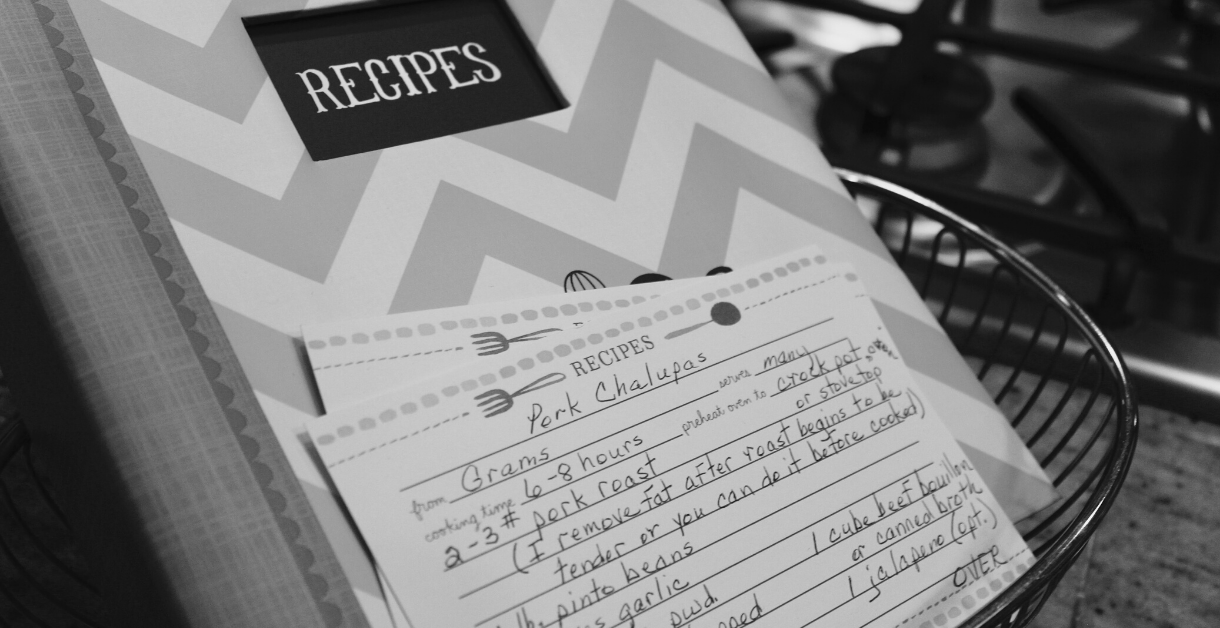 RECIPES
RECIPES
Pork Chalupas
from Grams serves many
cooking time 6-8 hours preheat oven to crock pot, oven
or stovetop
2-3# pork roast
(I remove fat after roast begins to be
tender or you can do it before cooked)
pinto beans 1 cube beef bouillon
garlic or canned broth
pwd. 1 jalapeno (opt.)
OVER